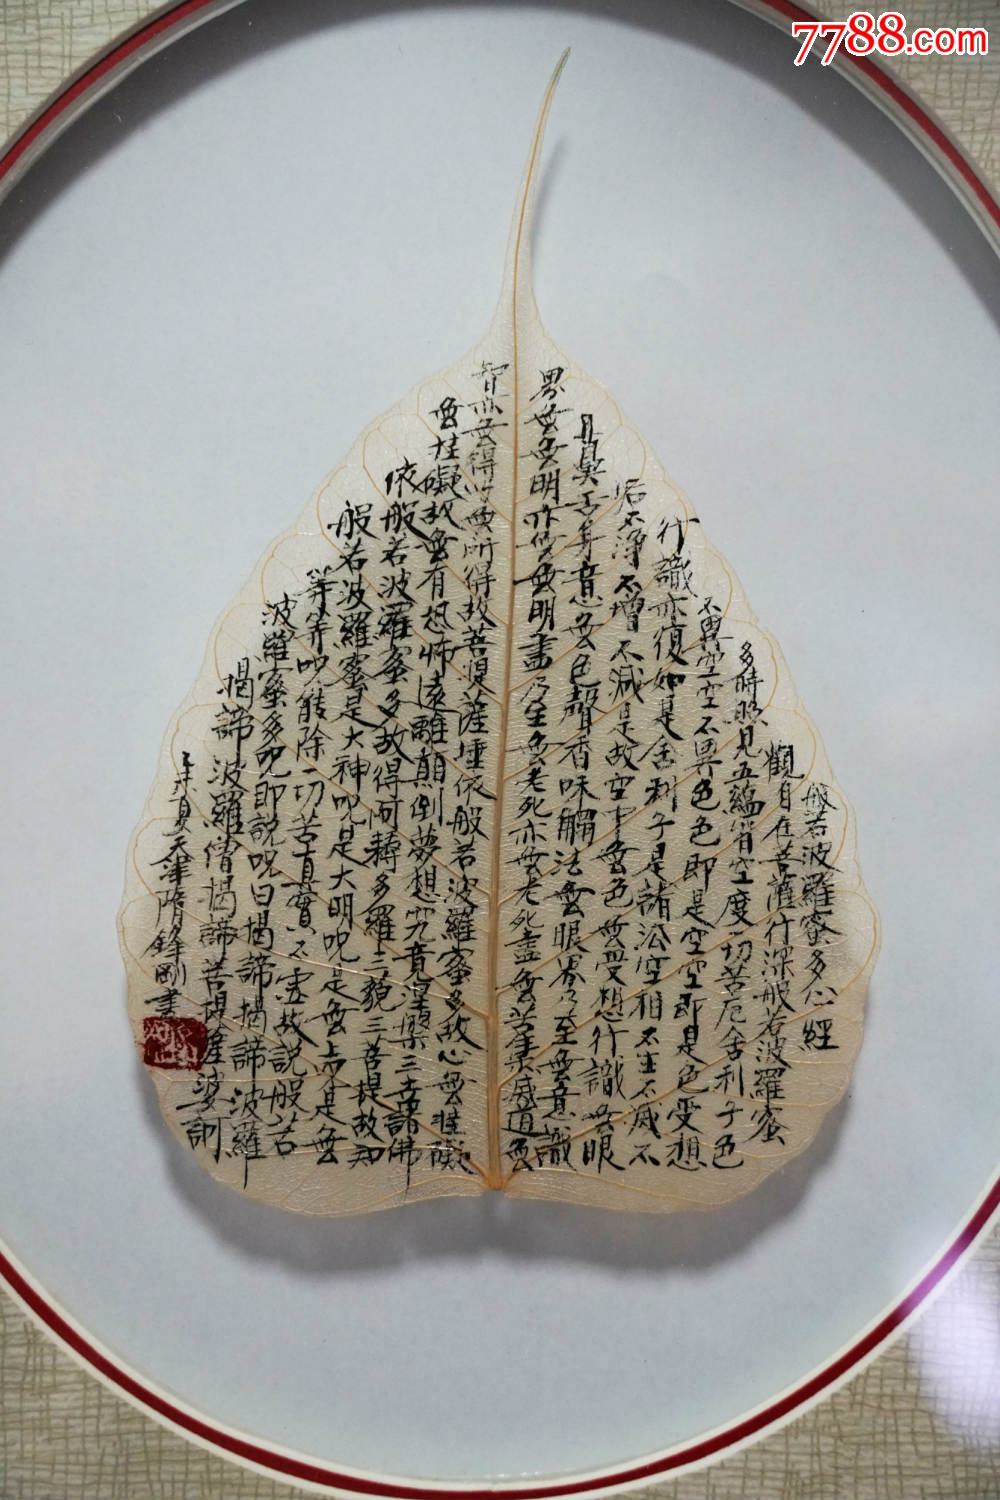 7788.com
般若波羅蜜多心經
觀自在菩薩行深般若波羅蜜
多時照見五蘊皆空度一切苦厄舍利子色
不異空空不異色色即是空空即是色受想
行識亦復如是舍利子是諸法空相不生不滅不
垢不淨不增不減是故空中無色無受想行識無眼
耳鼻舌身意無色聲香味觸法無眼界乃至無意識
界無無明亦無無明盡乃至無老死亦無老死盡無苦集滅道無
智亦無得以無所得故菩提薩埵依般若波羅蜜多故心無罣礙
無罣礙故無有恐怖遠離顛倒夢想究竟涅槃三世諸佛
依般若波羅蜜多故得阿耨多羅三藐三菩提故知
般若波羅蜜是大神咒是大明咒是無上咒是無
等等咒能除一切苦真實不虛故說般若
波羅蜜多咒即說咒曰揭諦揭諦波羅
揭諦波羅僧揭諦菩提薩婆訶
夏天津隋鋒剛書